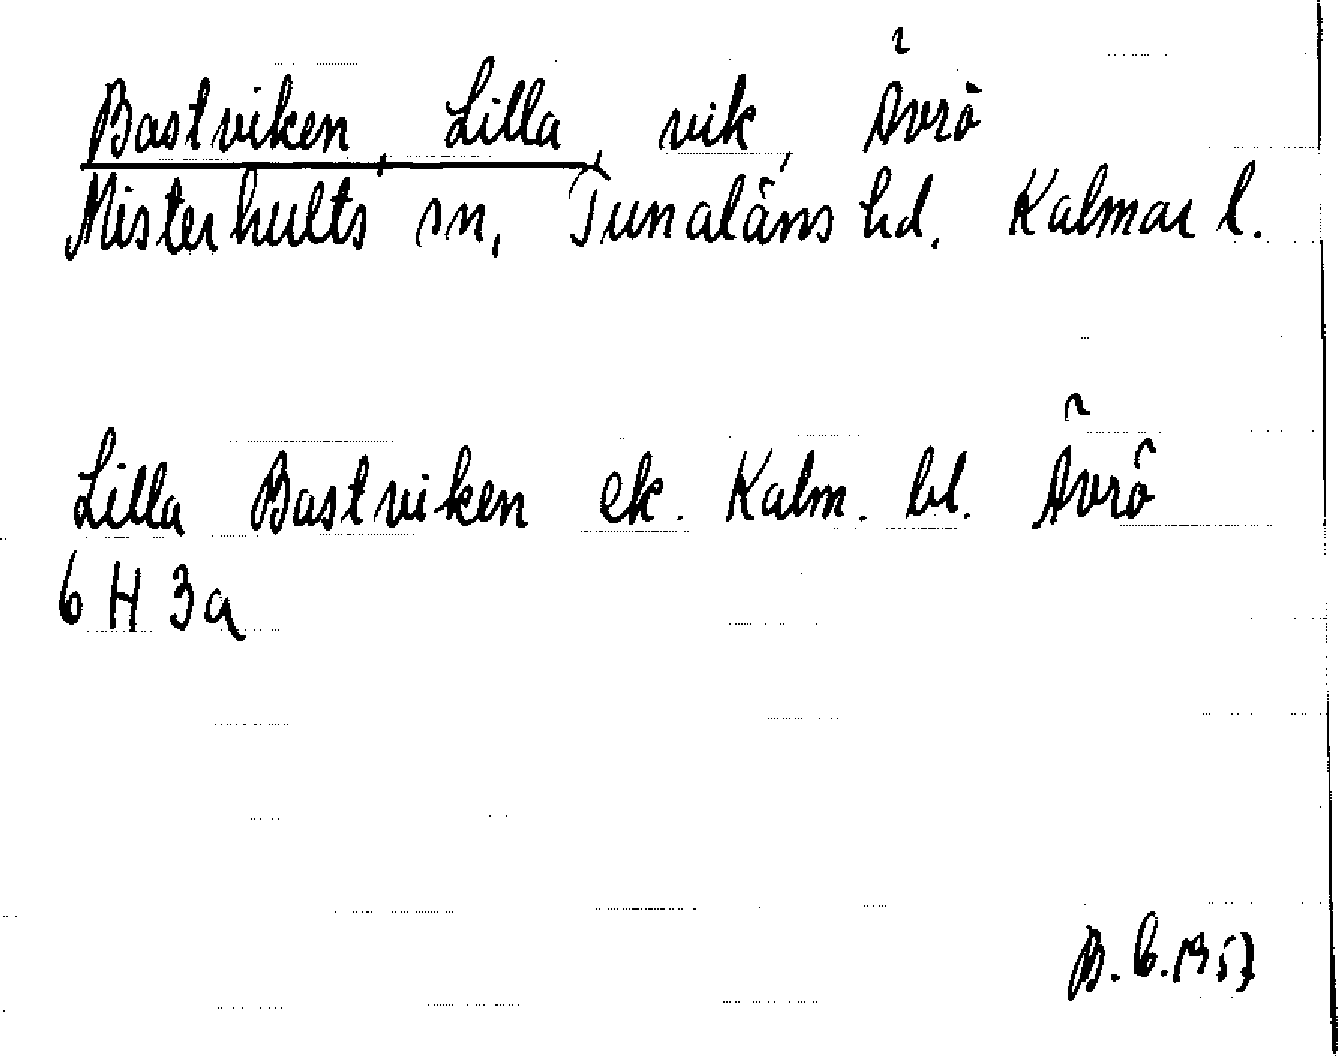 Bastviken, Lilla, vik, Ävrö
Misterhults sn, Tunaläns hd. Kalmar l.
Lilla Bastviken ek. Kalm. bl. Ävrö
6 H 3a
B. 6. 1957